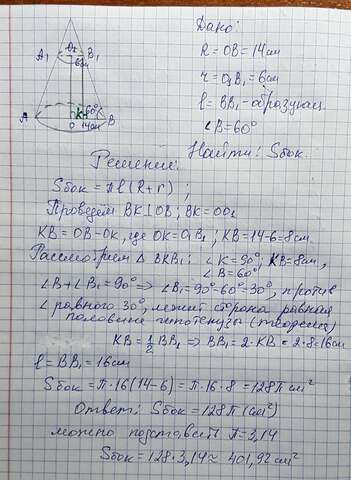 Дано:
R = OB = 14 см
r = O₁B₁ = 6 см
l = BB₁ - образующ.
∠B = 60°
Найти: Sбок.
A₁ O₁ B₁
6см
60°
A O K B
14см
Решение:
Sбок = πl(R+r);
Проведём BK⊥OB; BK = OO₁
KB = OB-OK, где OK=O₁B₁; KB=14-6=8см.
Рассмотрим △BKB₁: ∠K = 90°; KB=8см,
∠B = 60°
∠B+∠B₁=90° ⇒ ∠B₁=90°-60°=30°, против
∠ равного 30°, лежит сторона равная
половине гипотенузы (тведения)
KB = 1/2 BB₁ ⇒ BB₁ = 2·KB = 2·8=16см
l = BB₁ = 16см
Sбок = π·16(14-6) = π·16·8 = 128π см²
Ответ: Sбок = 128π (см²)
можно подставить π=3,14
Sбок = 128·3,14 ≈ 401,92 см²